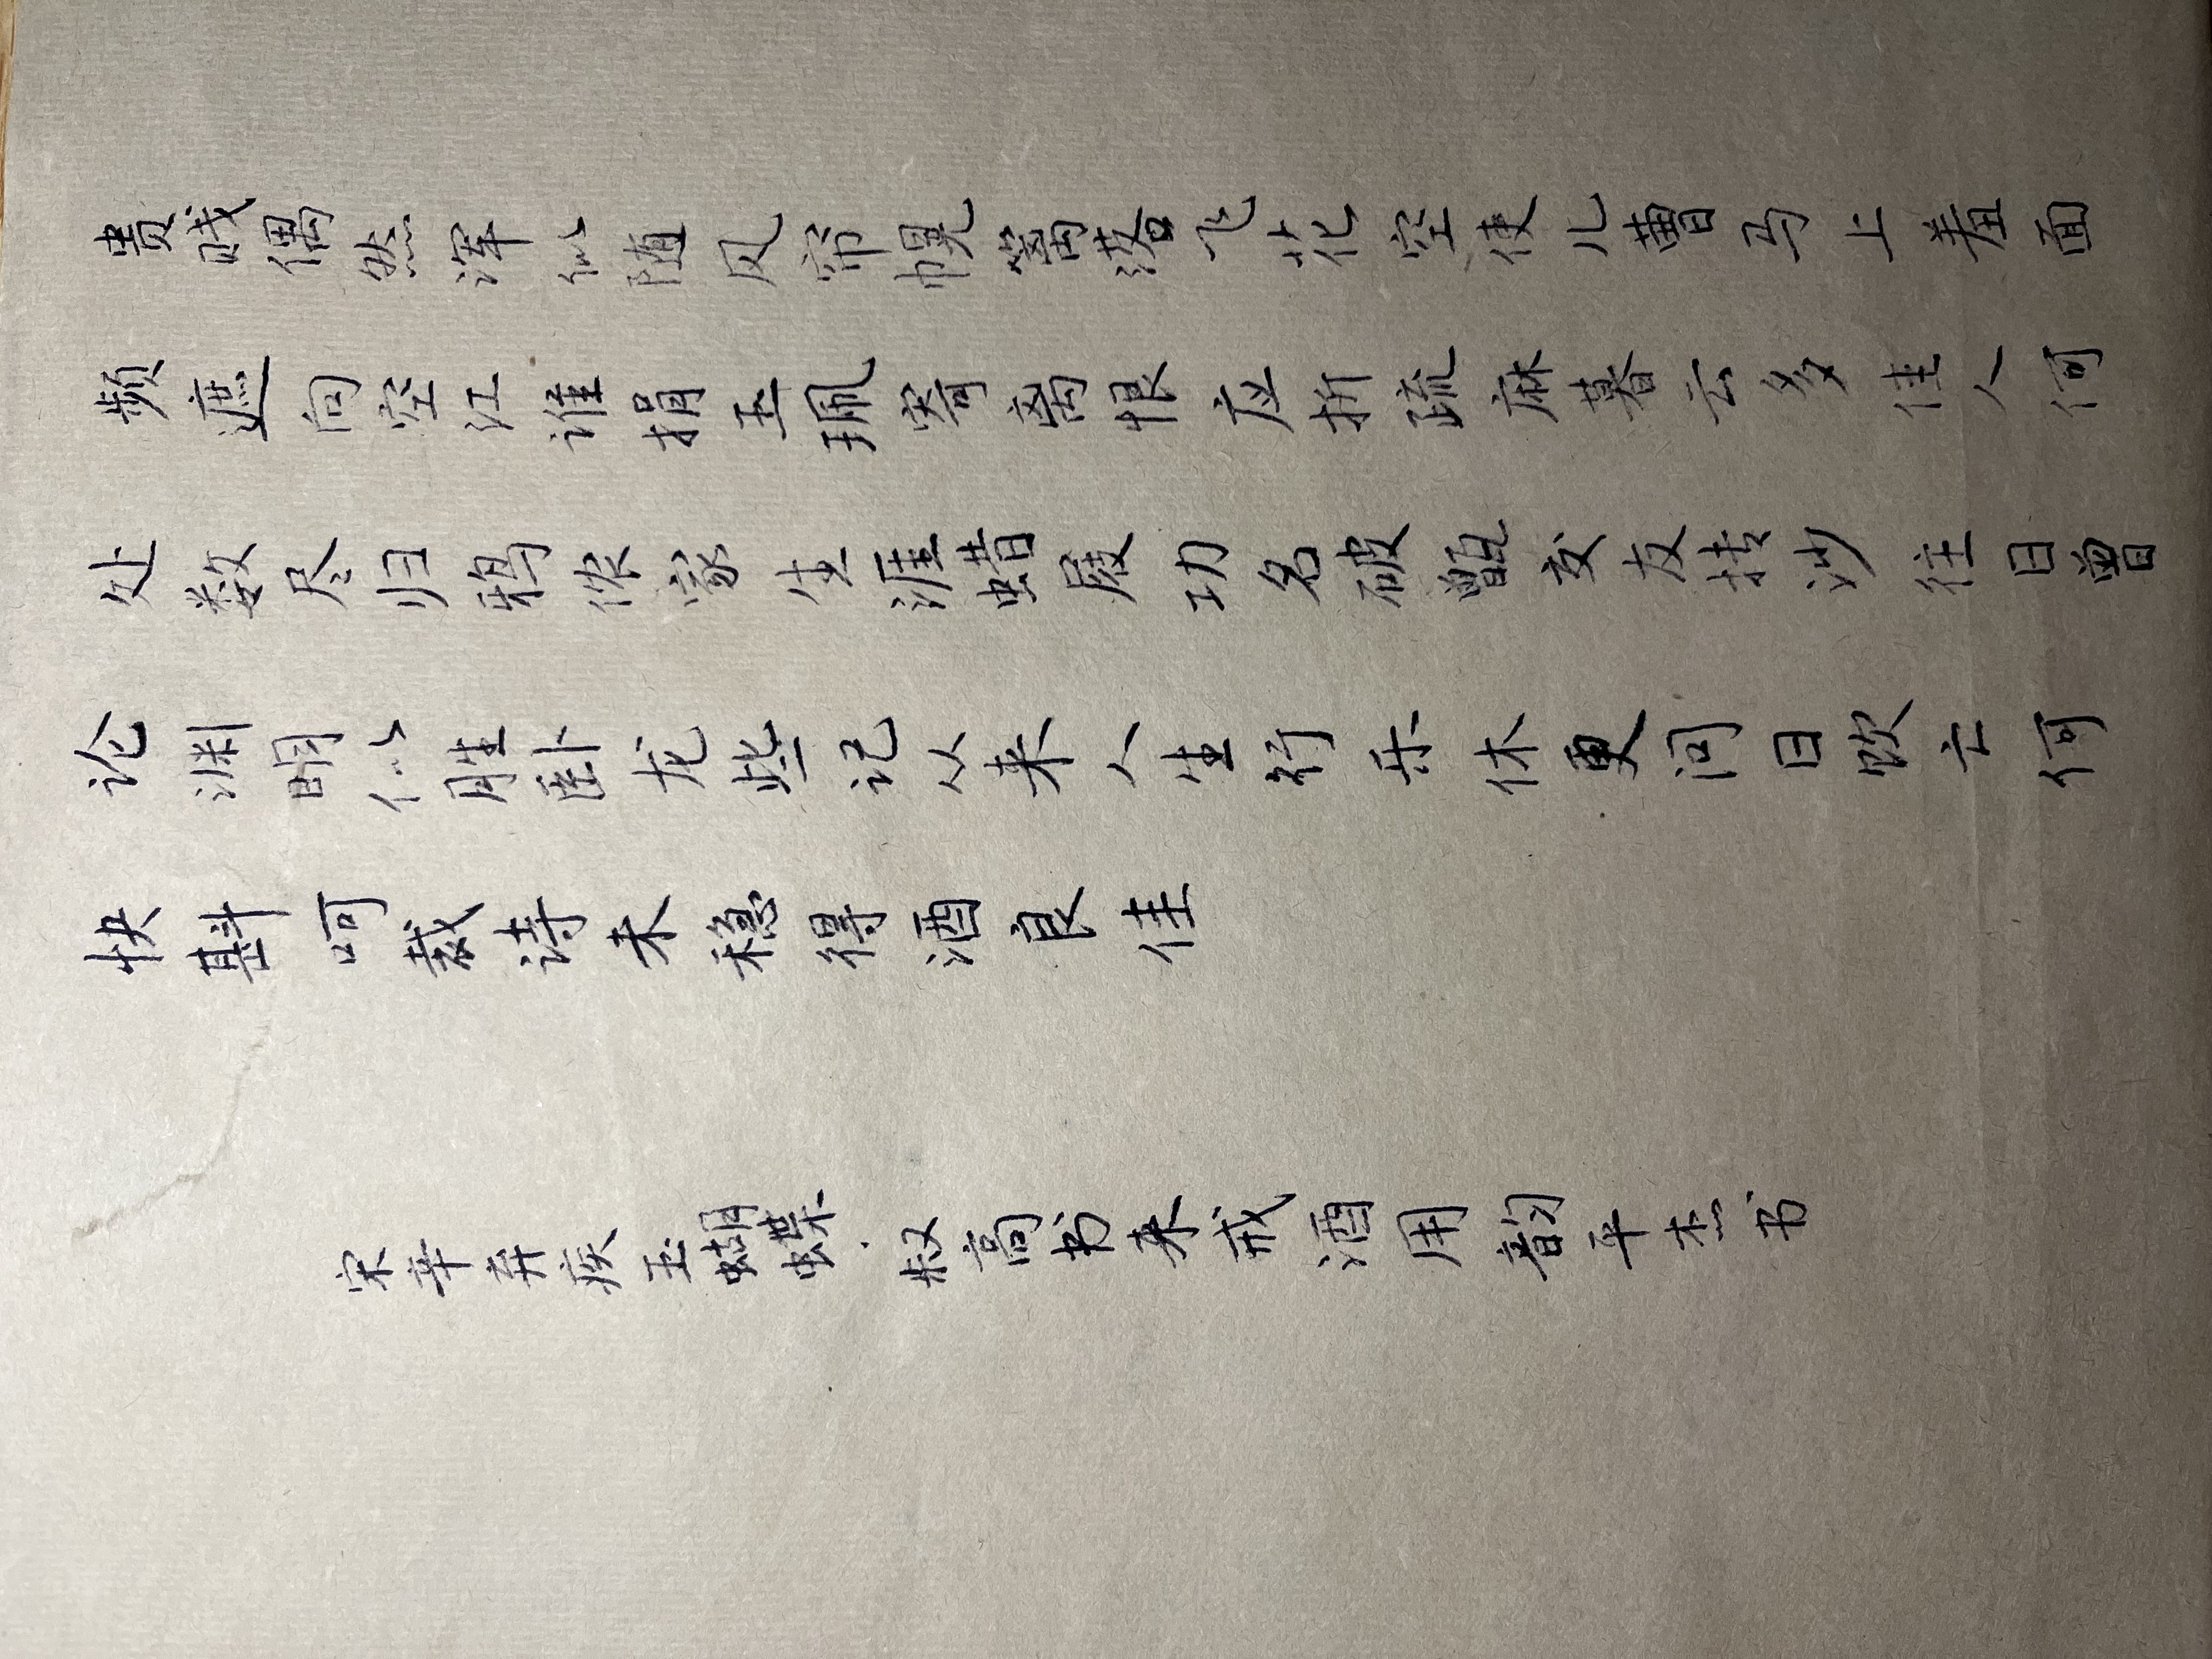 贵贱偶然浑似随风帘幌篱落飞花空使儿曹马上羞面
频遮向空江谁捐玉珮寄离恨应折疏麻暮云多佳人何
处数尽归鸦侬家生涯蜡屐功名破甑交友抟沙往日曾
论渊明似胜卧龙些记从来人生行乐休更问日饮亡何
快斟呵裁诗未稳得酒良佳
宋辛弃疾玉蝴蝶·叔高书来戒酒用韵平杰书